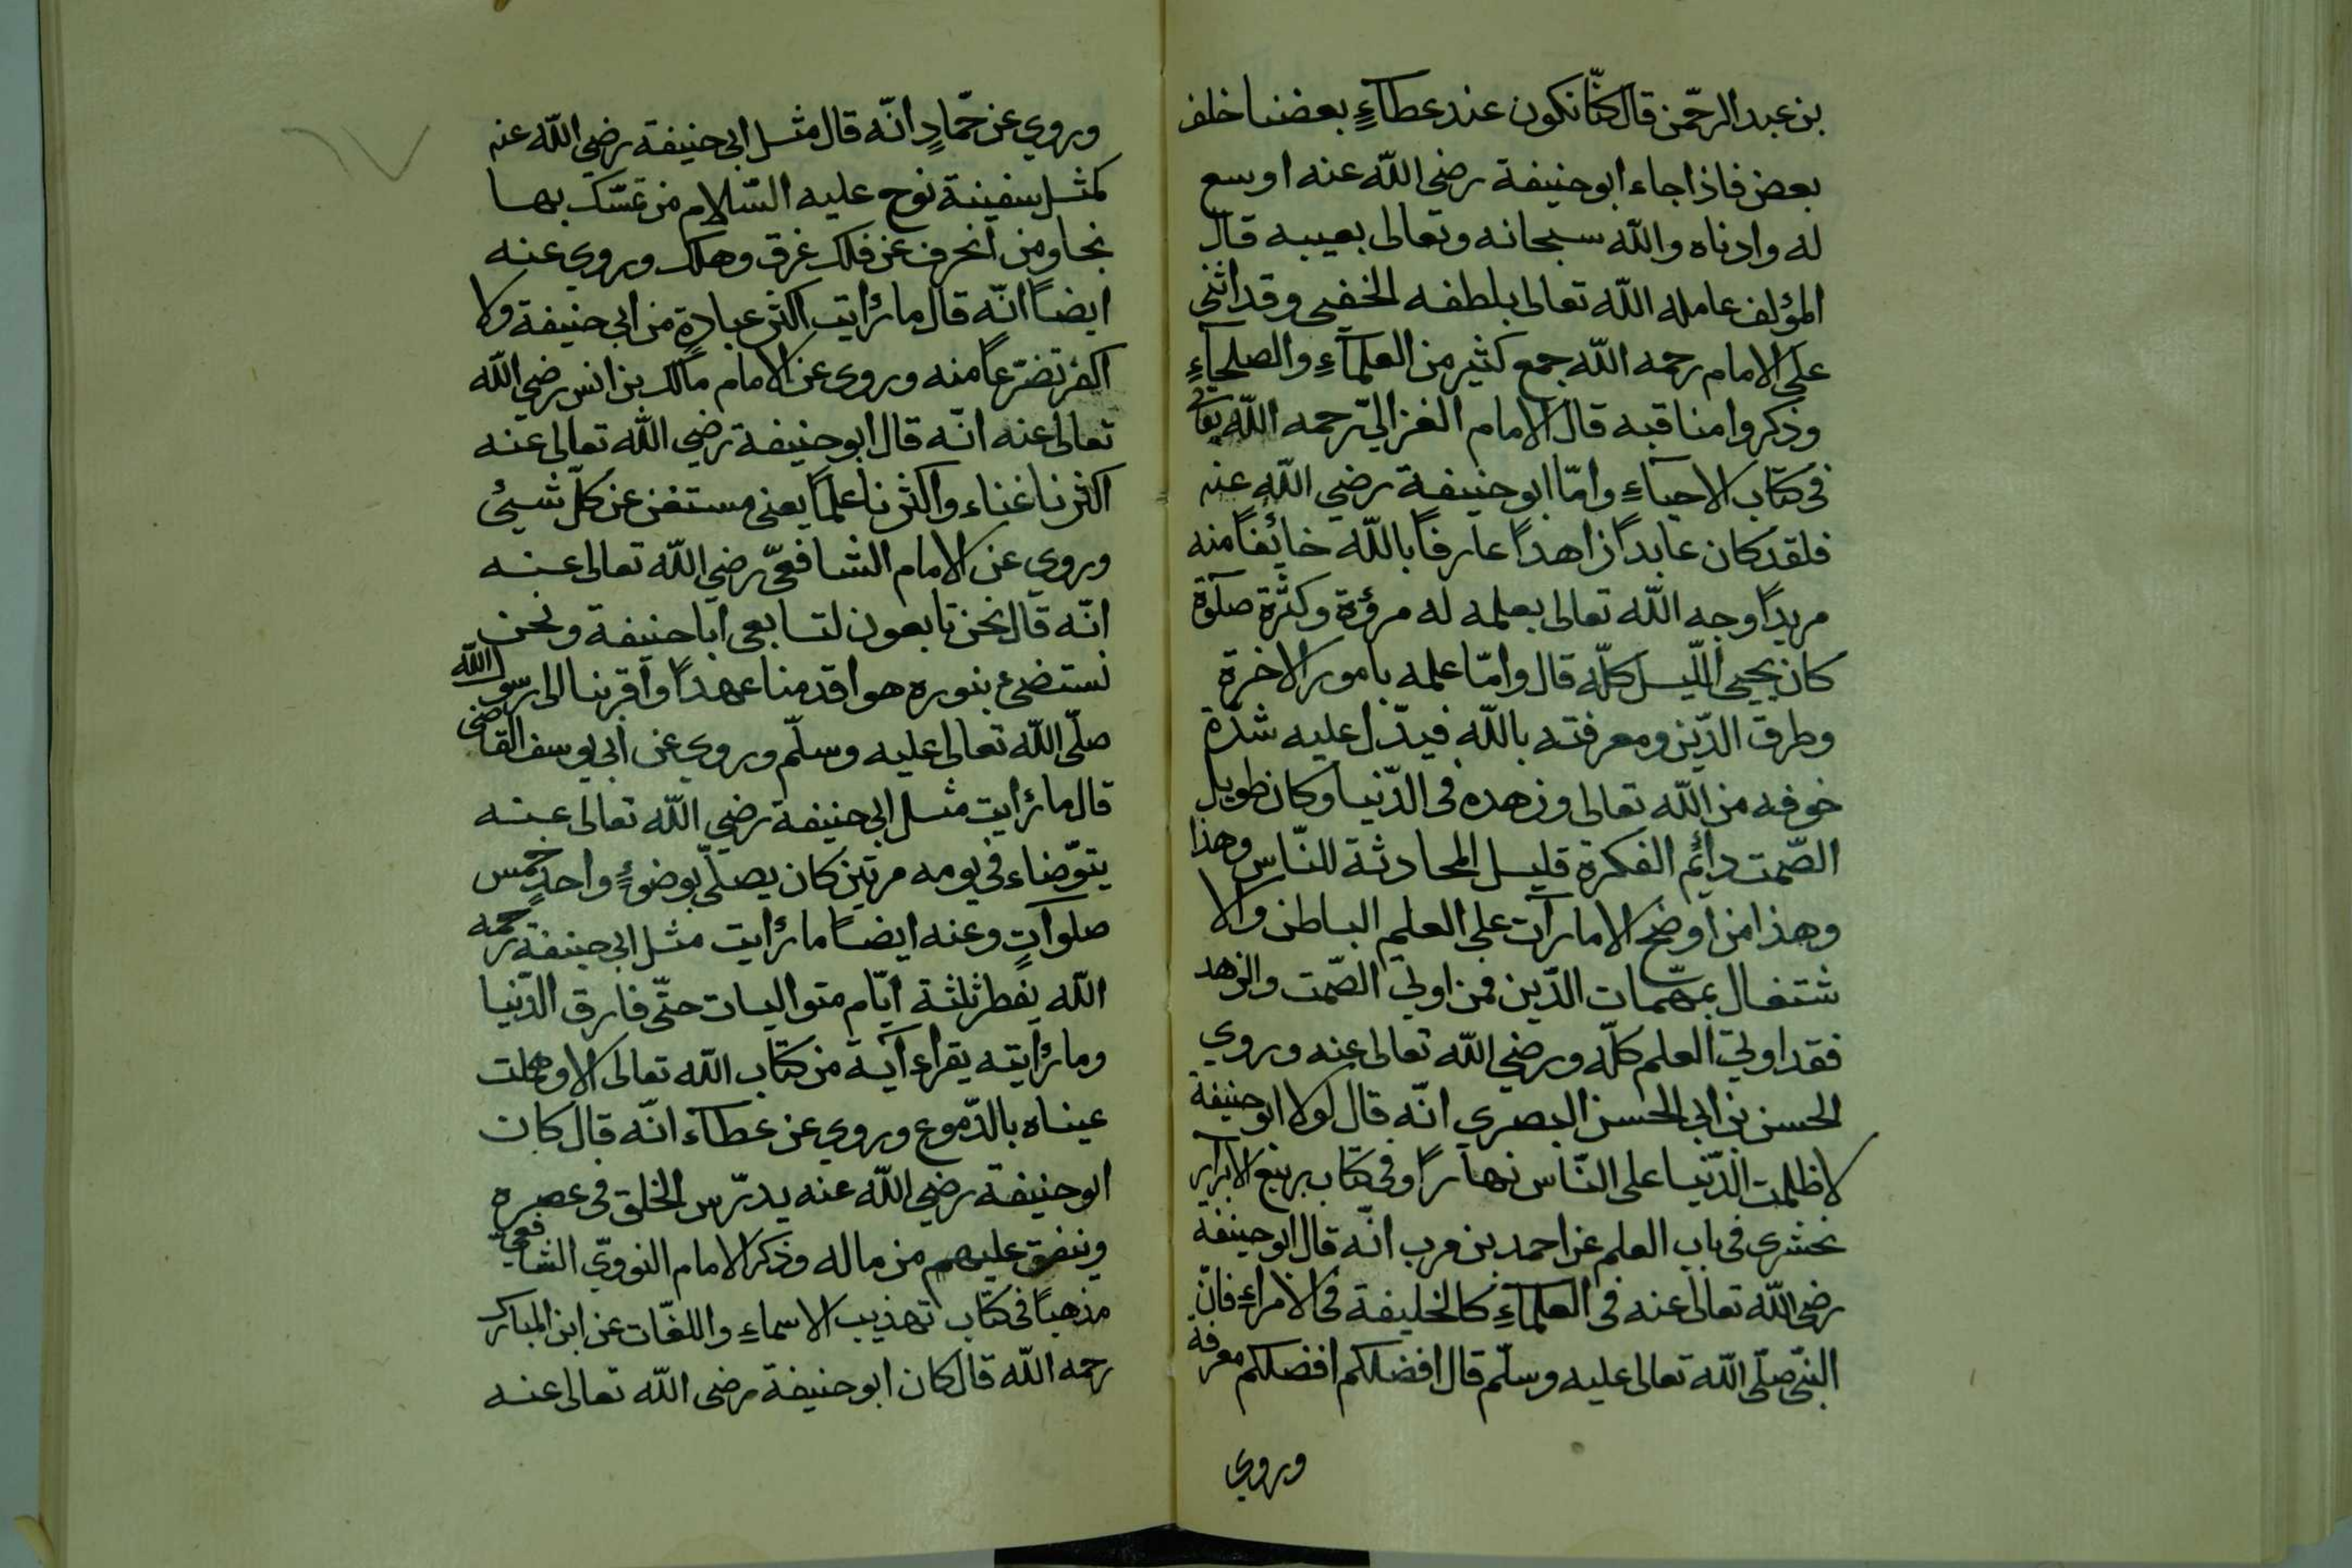 بن عبد الرحّمن قال كنّا نكون عند عطآءٍ بعضنا خلف
بعض فاذا جاء ابو حنيفة رضي اللّه عنه اوسع
له وادناه واللّه سبحانه وتعالى بعيبه قال
المؤلف عامله اللّه تعالى بلطفه الخفي وقد اثنى
على الامام رحمه اللّه جمع كثير من العلمآءِ والصلحآءِ
وذكروا مناقبه قال الامام الغزاليّ رحمه اللّه تعالى
فى كتاب الاحياءِ وامّا ابو حنيفة رضي اللّه عنه
فلقد كان عابداً زاهداً عارفاً باللّه خائفاً منه
مريداً وجه اللّه تعالى بعلمه له مرؤة وكثرة صلوة
كان يحيى اللّيل كلّه قال وامّا علمه بامور الاخرة
وطرق الدّين ومعرفته باللّه فيدّل عليه شدّة
خوفه من اللّه تعالى وزهده فى الدّنيا وكان طويل
الصّمت دائم الفكرة قليل المحادثة للنّاس وهذا
وهذا من اوضح الامارآت على العلم الباطن والا
شتغال بمهمّات الدّين فمن اولى الصّمت والزهد
فقد اولى العلم كلّه ورضي اللّه تعالى عنه وروي
الحسن بن ابى الحسن البصري انّه قال لولا ابو حنيفة
لاظلمت الدّنيا على النّاس نهاراً وفى كتاب ربيع الابرار
نحشرى فى باب العلم عن احمد بن مرب انّه قال ابو حنيفة
رضى اللّه تعالى عنه فى العلمآءِ كالخليفة فى الامراءِ فانّ
النّبى صلّى اللّه تعالى عليه وسلّم قال افضلكم افضلكم معرفة
وروي
وروي عن حمّادٍ انّه قال مثل ابى حنيفة رضي اللّه عنه
كمثل سفينة نوح عليه السّلام من تمسّك بها
نجا ومن انحرف عن فلك غرق وهلك وروي عنه
ايضاً انّه قال ما رأيت اكثر عبادةٍ من ابى حنيفة ولا
اكثر تضرّعاً منه وروى عن الامام مالك بن انس رضي اللّه
تعالى عنه انّه قال ابو حنيفة رضي اللّه تعالى عنه
اكثرنا غناء واكثرنا علماً يعنى مستغن عن كلّ شيئ
وروي عن الامام الشافعيّ رضي اللّه تعالى عنه
انّه قال نحن تابعون لتابعى اباحنيفة ونحن
نستضئ بنوره هو اقدمنا عهداً واقربنا الى رسول اللّه
صلّى اللّه تعالى عليه وسلّم وروي عن ابى يوسف القاضى
قال ما رأيت مثل ابى حنيفة رضي اللّه تعالى عنه
يتوّضاء فى يومه مرتين كان يصلّى بوضوءٍ واحدٍ خمس
صلوآتٍ وعنه ايضاً ما رأيت مثل ابى حنيفة رحمه
اللّه يفطر ثلثة ايّام متواليات حتّى فارق الدّنيا
وما رأيته يقراء آية من كتاب اللّه تعالى الا وهملت
عيناه بالدّموع وروي عن عطآء انّه قال كان
ابو حنيفة رضي اللّه عنه يدرّس الخلق فى عصره
وينفق عليهم من ماله وذكر الامام النوويّ الشافعيّ
مذهباً فى كتاب تهذيب الاسماءِ واللغّات عن ابن المبارك
رحمه اللّه قال كان ابو حنيفة رضى اللّه تعالى عنه